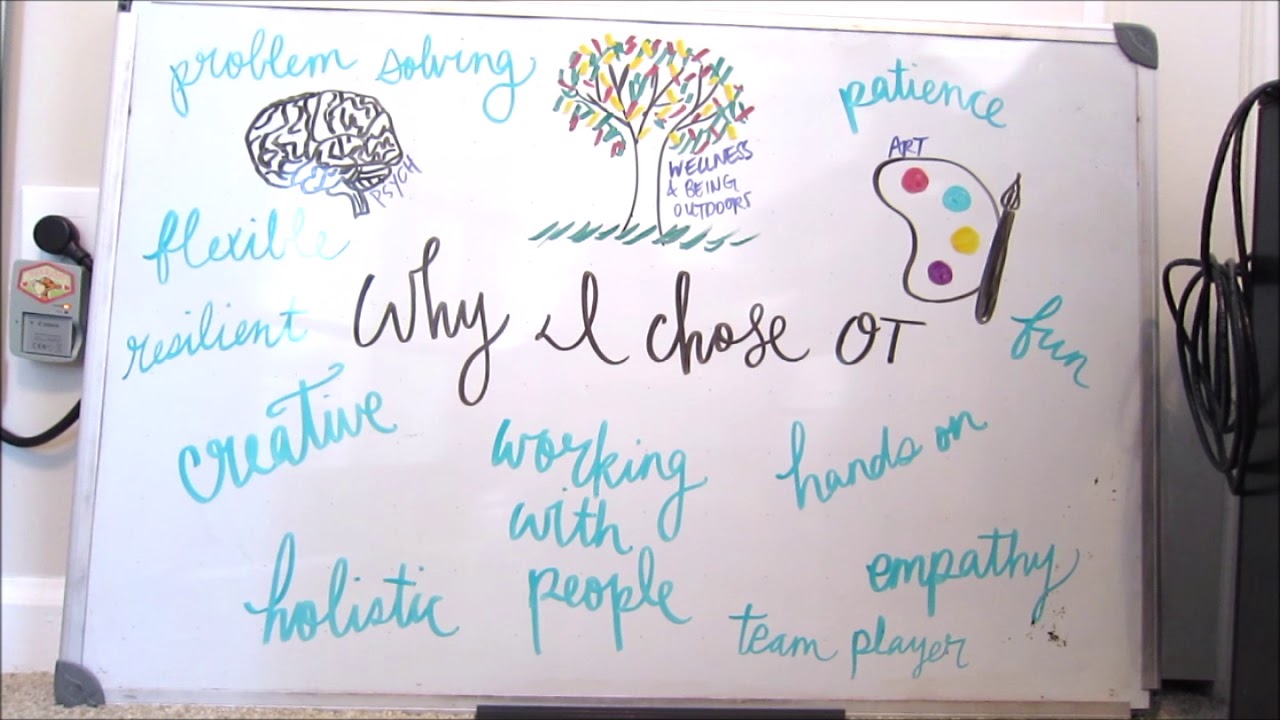 problem solving
patience
PSYCH
WELLNESS
& BEING
OUTDOORS
ART
flexible
Why I chose OT
resilient
fun
creative
working
with
people
hands on
holistic
empathy
team player
Canon